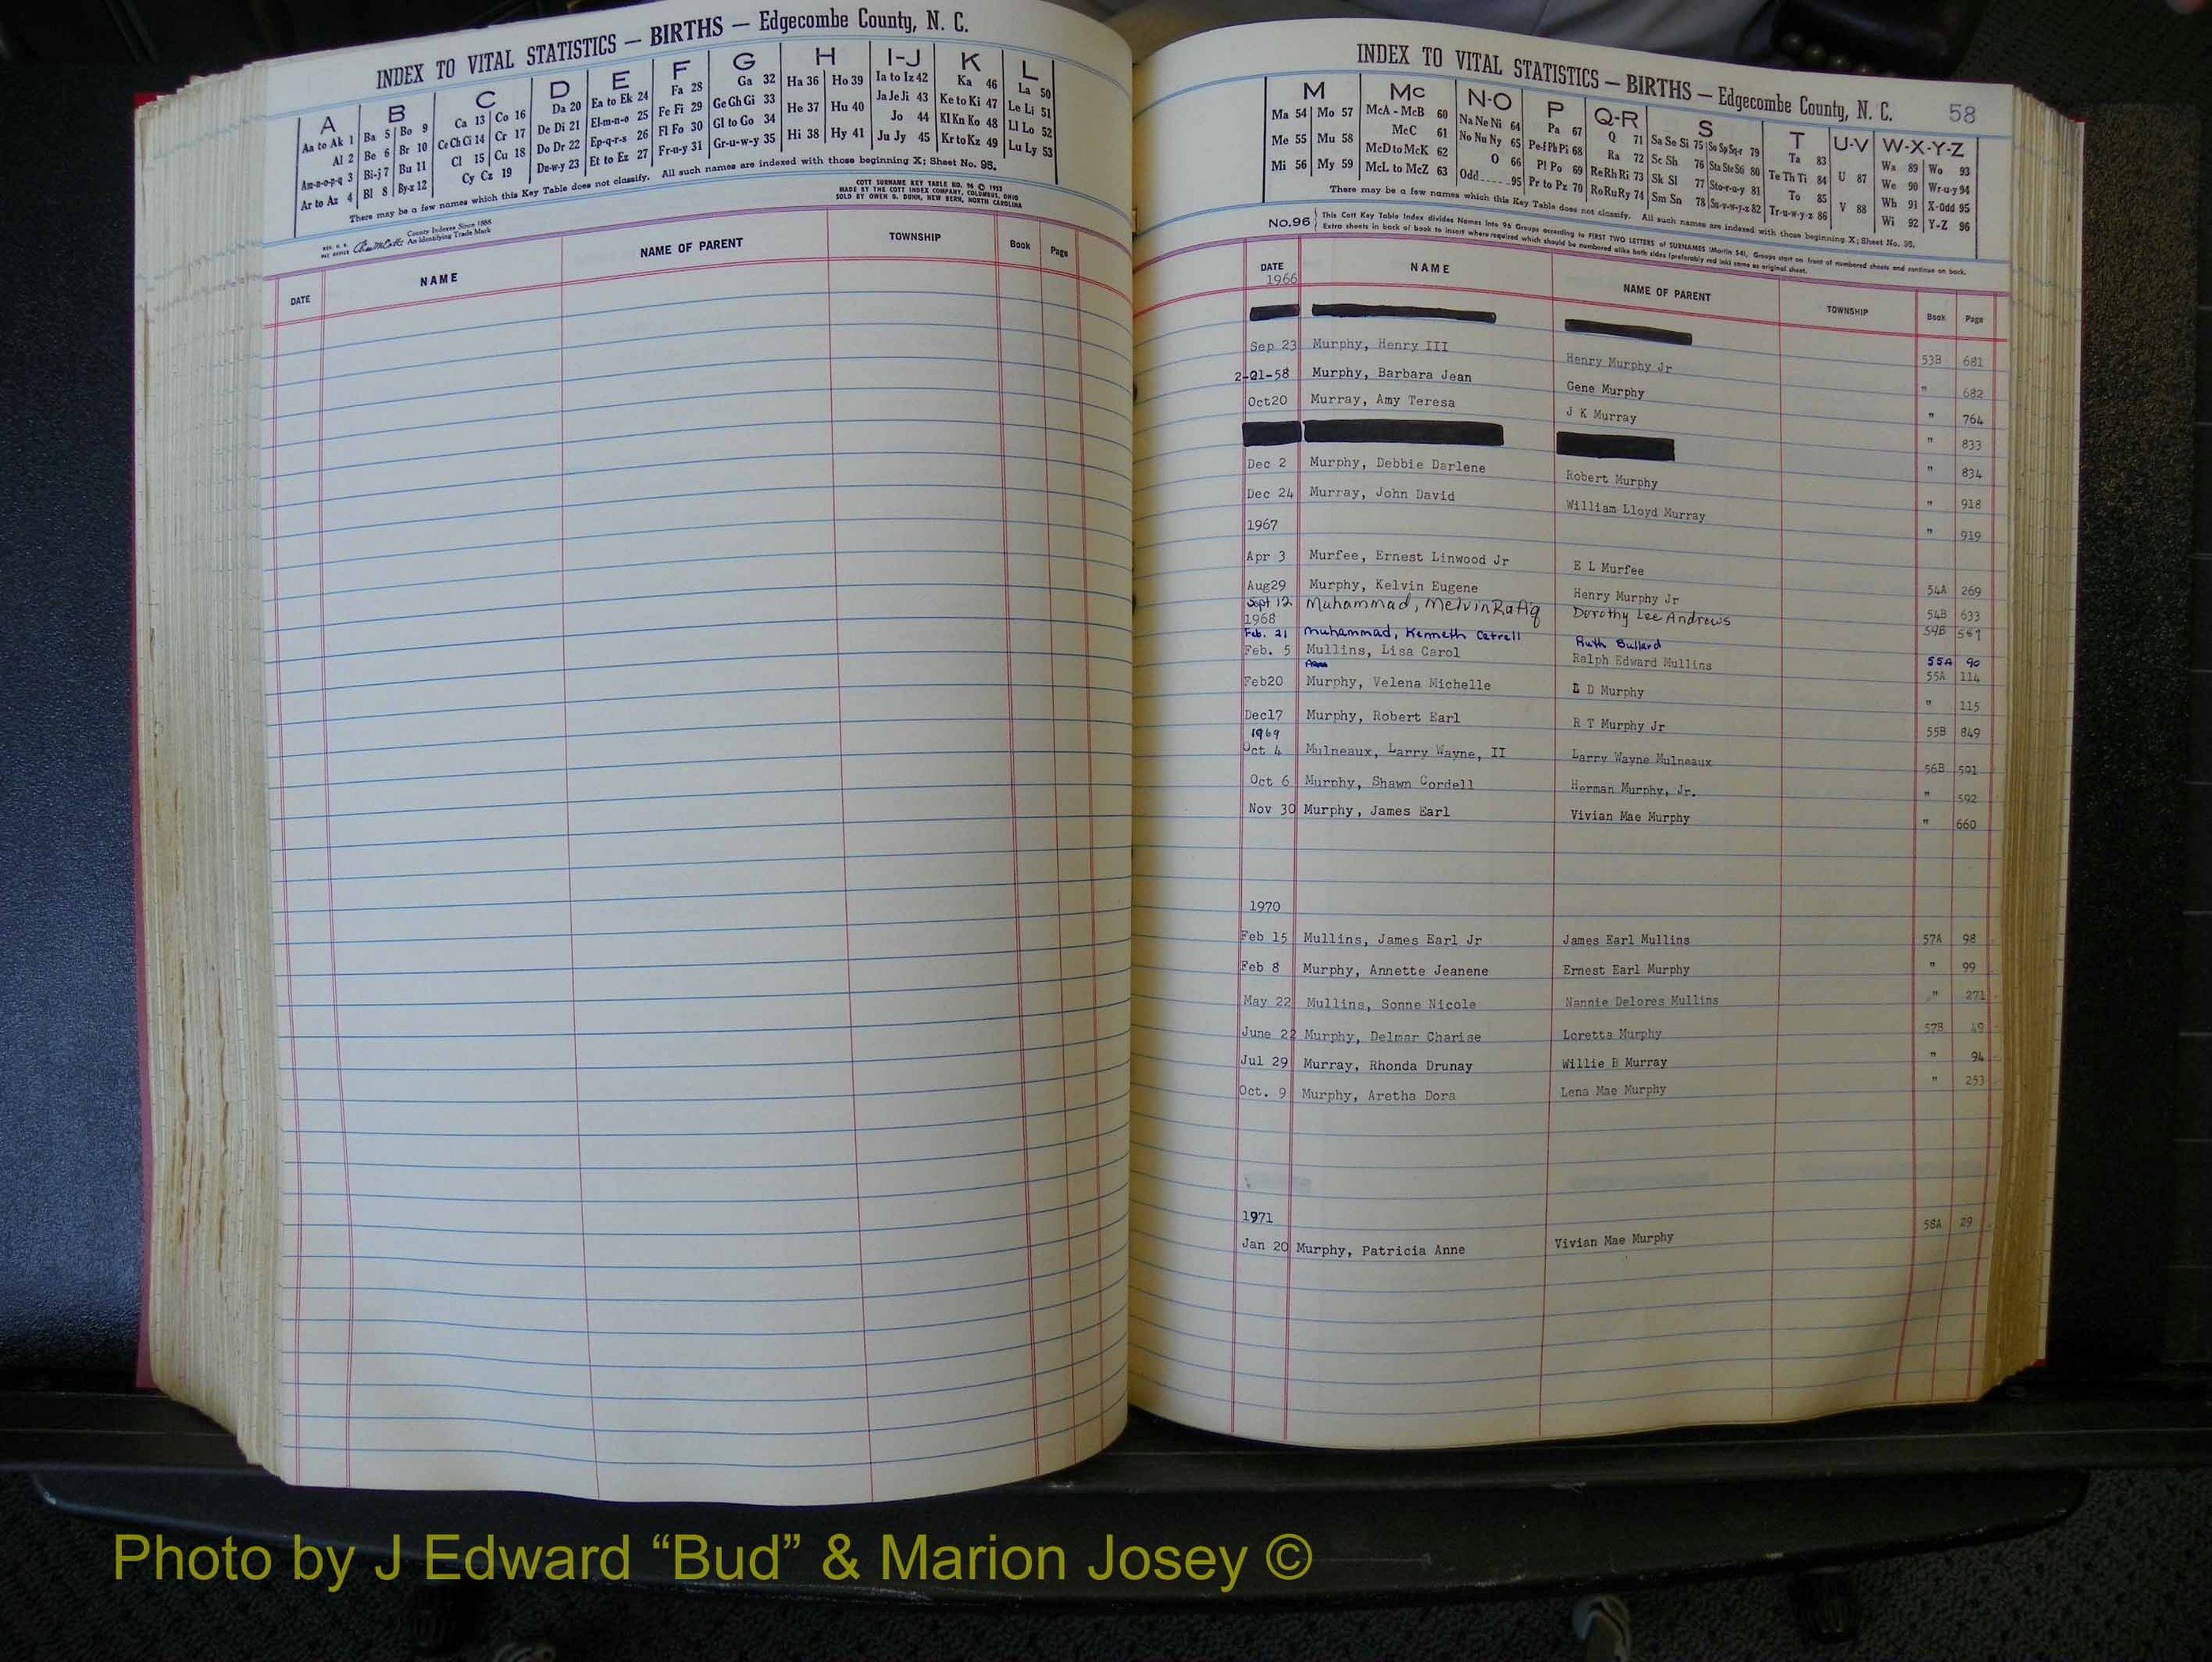 INDEX TO VITAL STATISTICS — BIRTHS — Edgecombe County, N. C.
A B C D E F G H I-J K L
Aa to Ak 1 Ba 5 Bo 9 Ca 13 Co 16 Da 20 Ea to Ek 24 Fa 28 Ga 32 Ha 36 Ho 39 Ia to Iz 42 Ka 46 La 50
Al 2 Be 6 Br 10 Ce Ch Ci 14 Cr 17 De Di 21 El-m-n-o 25 Fe Fi 29 Ge Gh Gi 33 He 37 Hu 40 Ja Je Ji 43 Ke to Ki 47 Le Li 51
Am-n-o-p-q 3 Bi-j 7 Bu 11 Cl 15 Cu 18 Do Dr 22 Ep-q-r-s 26 Fl Fo 30 Gl to Go 34 Hi 38 Hy 41 Jo 44 Kl Kn Ko 48 Ll Lo 52
Ar to Az 4 Bl 8 By-z 12 Cy Cz 19 Du-w-y 23 Et to Ez 27 Fr-u-y 31 Gr-u-w-y 35 Ju Jy 45 Kr to Kz 49 Lu Ly 53
There may be a few names which this Key Table does not classify. All such names are indexed with those beginning X; Sheet No. 95.
County Indexes Since 1888
An Identifying Trade Mark
COTT SURNAME KEY TABLE NO. 96 © 1953
MADE BY THE COTT INDEX COMPANY, COLUMBUS, OHIO
SOLD BY OWEN G. DUNN, NEW BERN, NORTH CAROLINA
DATE NAME NAME OF PARENT TOWNSHIP Book Page
INDEX TO VITAL STATISTICS — BIRTHS — Edgecombe County, N. C. 58
M Mc N-O P Q-R S T U-V W-X-Y-Z
Ma 54 Mo 57 McA - McB 60 Na Ne Ni 64 Pa 67 Q 71 Sa Se Si 75 So Sp Sq-r 79 Ta 83 U 87 Wa 89 Wo 93
Me 55 Mu 58 McC 61 No Nu Ny 65 Pe-f Ph Pi 68 Ra 72 Sc Sh 76 Sta Ste Sti 80 Te Th Ti 84 V 88 We 90 Wr-u-y 94
Mi 56 My 59 McD to McK 62 O 66 Pl Po 69 Re Rh Ri 73 Sk Sl 77 Sto-r-u-y 81 To 85 Wh 91 X-Odd 95
McL to McZ 63 Odd 95 Pr to Pz 70 Ro Ru Ry 74 Sm Sn 78 Su-v-w-y-z 82 Tr-u-w-y-z 86 Wi 92 Y-Z 96
There may be a few names which this Key Table does not classify. All such names are indexed with those beginning X; Sheet No. 95.
No. 96 This Cott Key Table Index divides Names into 96 Groups according to FIRST TWO LETTERS of SURNAMES (Martin 54), Groups start on front of numbered sheets and continue on back.
Extra sheets in back of book to insert where required which should be numbered alike both sides (preferably red ink) same as original sheet.
DATE NAME NAME OF PARENT TOWNSHIP Book Page
1966
Sep 23 Murphy, Henry III Henry Murphy Jr 53B 681
2-21-58 Murphy, Barbara Jean Gene Murphy " 682
Oct20 Murray, Amy Teresa J K Murray " 764
" 833
Dec 2 Murphy, Debbie Darlene Robert Murphy " 834
Dec 24 Murray, John David William Lloyd Murray " 918
1967 " 919
Apr 3 Murfee, Ernest Linwood Jr E L Murfee 54A 269
Aug29 Murphy, Kelvin Eugene Henry Murphy Jr 54B 633
Sept 12 Muhammad, Melvin Rafiq Dorothy Lee Andrews 54B
1968
Feb. 21 Muhammad, Kenneth Catrell Ruth Bullard 55A 90
Feb. 5 Mullins, Lisa Carol Ralph Edward Mullins 55A 114
Feb20 Murphy, Velena Michelle E D Murphy " 115
Dec17 Murphy, Robert Earl R T Murphy Jr 55B 849
1969
Oct 4 Mulneaux, Larry Wayne, II Larry Wayne Mulneaux 56B 591
Oct 6 Murphy, Shawn Cordell Herman Murphy, Jr. " 592
Nov 30 Murphy, James Earl Vivian Mae Murphy " 660
1970
Feb 15 Mullins, James Earl Jr James Earl Mullins 57A 98
Feb 8 Murphy, Annette Jeanene Ernest Earl Murphy " 99
May 22 Mullins, Sonne Nicole Nannie Delores Mullins " 271
June 22 Murphy, Delmar Charise Loretta Murphy 57B 49
Jul 29 Murray, Rhonda Drunay Willie B Murray " 94
Oct. 9 Murphy, Aretha Dora Lena Mae Murphy " 253
1971
Jan 20 Murphy, Patricia Anne Vivian Mae Murphy 58A 29
Photo by J Edward “Bud” & Marion Josey ©